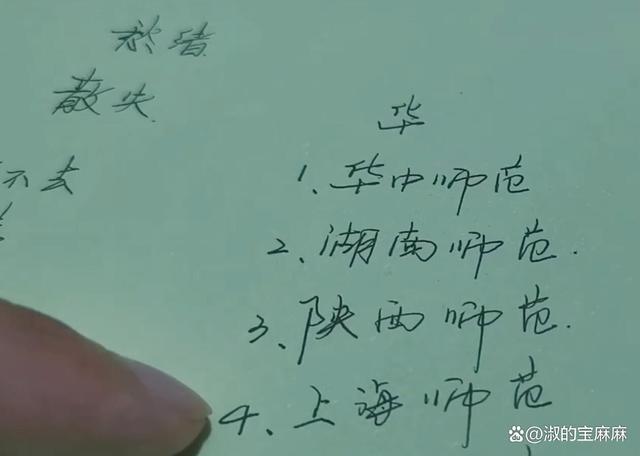 散失
华
不去
1、华中师范
2、湖南师范.
3、陕西师范.
4、上海师范
@淑的宝麻麻